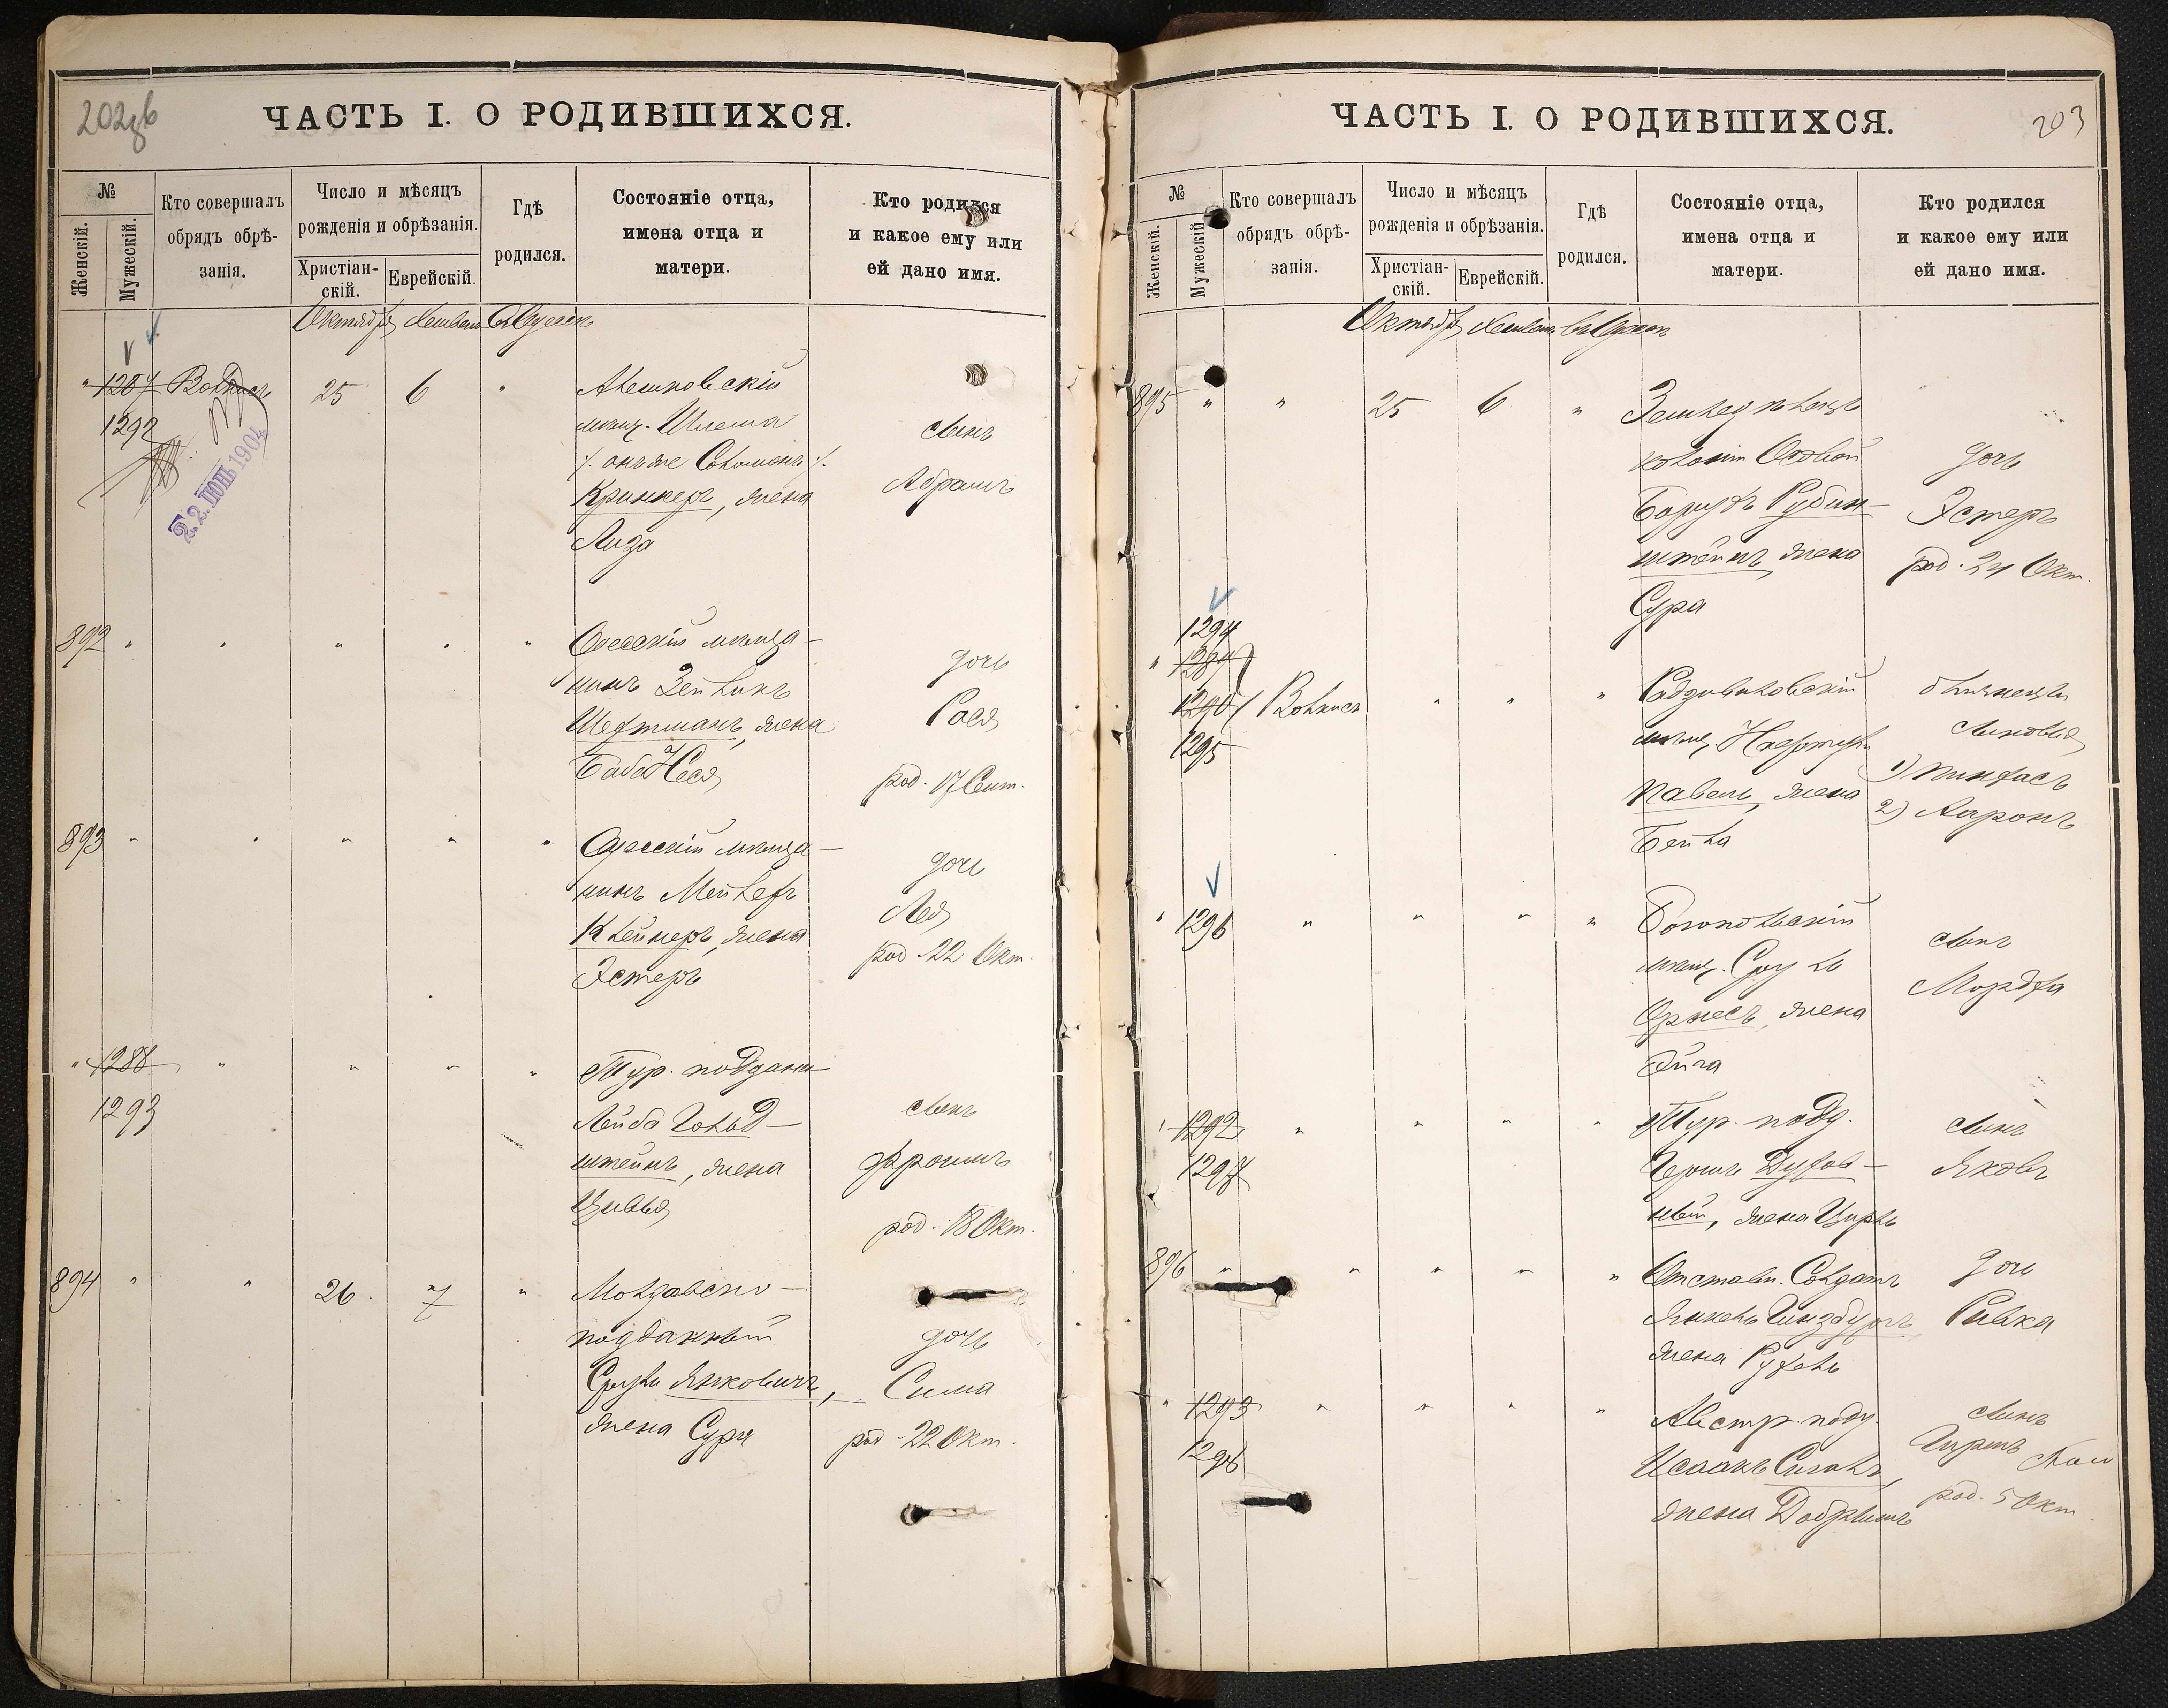 202об
ЧАСТЬ I. О РОДИВШИХСЯ.
№
Женскій.
Мужескій.
Кто совершалъ
обрядъ обрѣ-
занія.
Число и мѣсяцъ
рожденія и обрѣзанія.
Христіан-
скій.
Еврейскій.
Гдѣ
родился.
Состояніе отца,
имена отца и
матери.
Кто родился
и какое ему или
ей дано имя.
Октябрь
" 1287 25 6 "
1292
22 ІЮН 1904
мѣщ. Шлема
/. онъ же Соломонъ /.
Кришкеръ, жена
Лиза
сынъ
Абрамъ
892 " " " " "
Одесскій мѣща-
нинъ Зейликъ
Шефтманъ, жена
Баба Неся
дочь
Рася
род. 17 Сент.
893 " " " " "
Одесскій мѣща-
нинъ Мейлеръ
Клейнеръ, жена
Эстеръ
дочь
Лея
род. 22 Окт.
" 1288 " " " "
1293
Тур. поддан.
Лейба Гольд-
штейнъ, жена
Цивья
сынъ
Фроимъ
род. 18 Окт.
894 " " 26. 7 "
Молдавско-
подданный
Срулъ Янковичъ,
жена Сура
дочь
Сима
род. 22 Окт.
203
ЧАСТЬ I. О РОДИВШИХСЯ.
№
Женскій.
Мужескій.
Кто совершалъ
обрядъ обрѣ-
занія.
Число и мѣсяцъ
рожденія и обрѣзанія.
Христіан-
скій.
Еврейскій.
Гдѣ
родился.
Состояніе отца,
имена отца и
матери.
Кто родился
и какое ему или
ей дано имя.
Октябрь
895 " " 25 6 "
Земледѣлецъ
колоніи
Борухъ Рубин-
штейнъ, жена
Сура
дочь
Эстеръ
род. 24 Окт.
1294
" 1289
1290
1295
Радзивиловскій
мѣщ.
Павель, жена
Бейла
близнецы
сыновья
1) Пинхасъ
2) Ааронъ
" 1296 " " " "
мѣщ. Сруль
жена
сынъ
Мордха
" 1292 " " " "
1297
Тур. подд.
Гершъ Духов-
ный, жена Цирль
сынъ
Яковъ
896 " " " " "
Отставн. Солдатъ
Янкель Гинзбургъ
жена Рухель
дочь
Ривка
" 1293 " " " "
1298
Австр. подд.
Исаакъ Сигалъ,
жена
сынъ
Гиршъ
род. 5 Окт.